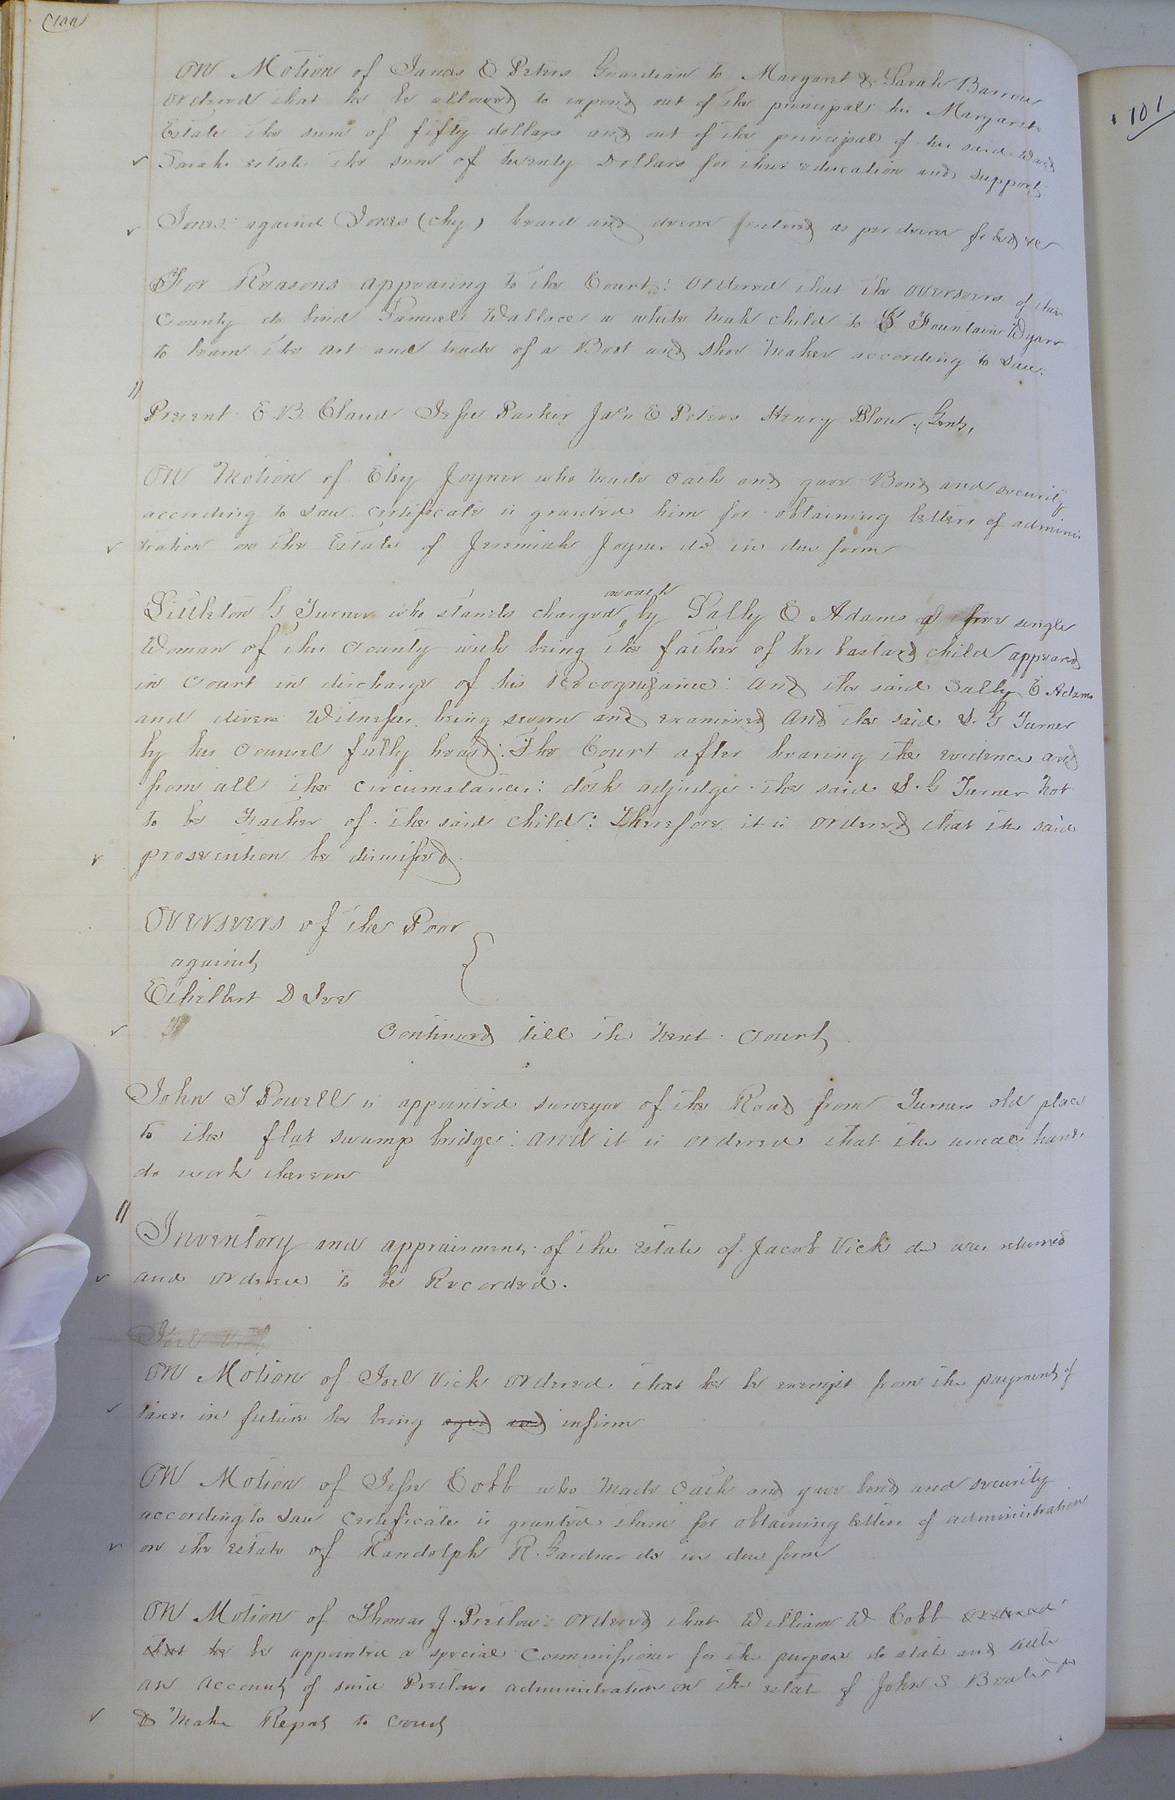 100
101
On Motion of James E Peters Guardian to Margaret & Sarah Barrow
Ordered that he be allowed to expend out of the principal his Margarets
Estate the sum of fifty dollars and out of the principal of his said Ward
Sarah estate the sum of twenty Dollars for their education and support
Jones against Jones (chy) heard and decree as per decree filed &c
For Reasons appearing to the Court: Ordered that the overseers of this
County do bind Samuel Wallace a white male child to Fountain Wyatt
to learn the art and trade of a Boot and Shoe Maker according to Law.
Present E B Claud Jesse Parker Jas E Peters Henry Blow Gents,
On Motion of Eley Joyner who made Oath and gave Bond and security
according to Law certificate is granted him for obtaining letters of adminis
tration on the Estate of Jeremiah Joyner dd in due form
on oath
Littleton G Turner who stands charged by Sally E Adams a free single
Woman of this County with being the father of her bastard child appeared
in Court in discharge of his Recognizance: and the said Sally E Adams
and divers Witnesses being sworn and examined and the said L. G Turner
by his Council fully heard: The Court after hearing the evidence and
from all the circumstances: doth adjudge the said L. G Turner Not
to be Father of the said child: Therefore it is ordered that the said
prosecution be dismissed.
Overseers of the Poor
against
Ethelbert D
Continued till the next Court
John T Powell is appointed surveyor of the Road from Turners old place
to the flat swamp bridge: and it is ordered that the usual hands
do work thereon
Inventory and appraisment of the estate of Jacob Vick dd was returned
and ordered to be Recorded.
Joel Vick
On Motion of Joel Vick Ordered that he be exempt from the payment of
taxes in future he being aged and infirm
On Motion of Jesse Cobb who Made Oath and gave bond and security
according to Law Certificate is granted him for obtaining letters of administration
on the estate of Randolph R. Gardner dd in due form
On Motion of Thomas J. Pretlow: Ordered that William W Cobb ordered
that he be appointed a special Commissioner for the purpose to state and settle
an account of said Pretlow administration on the estate of John S
& Make Report to Court